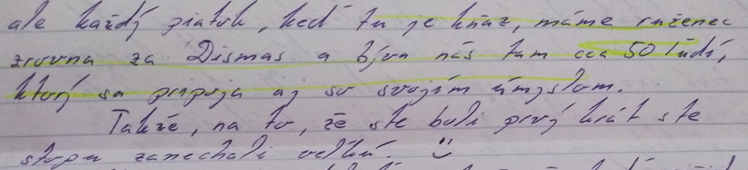 ale každý piatok, keď tu je kňaz, máme ruženec
zrovna za Dismas a býva nás tam cca 50 ľudí,
ktorý sa pripoja aj so svojím úmyslom.
Takže, na to, že ste boli prvý krát ste
stopu zanechali veľkú. :)